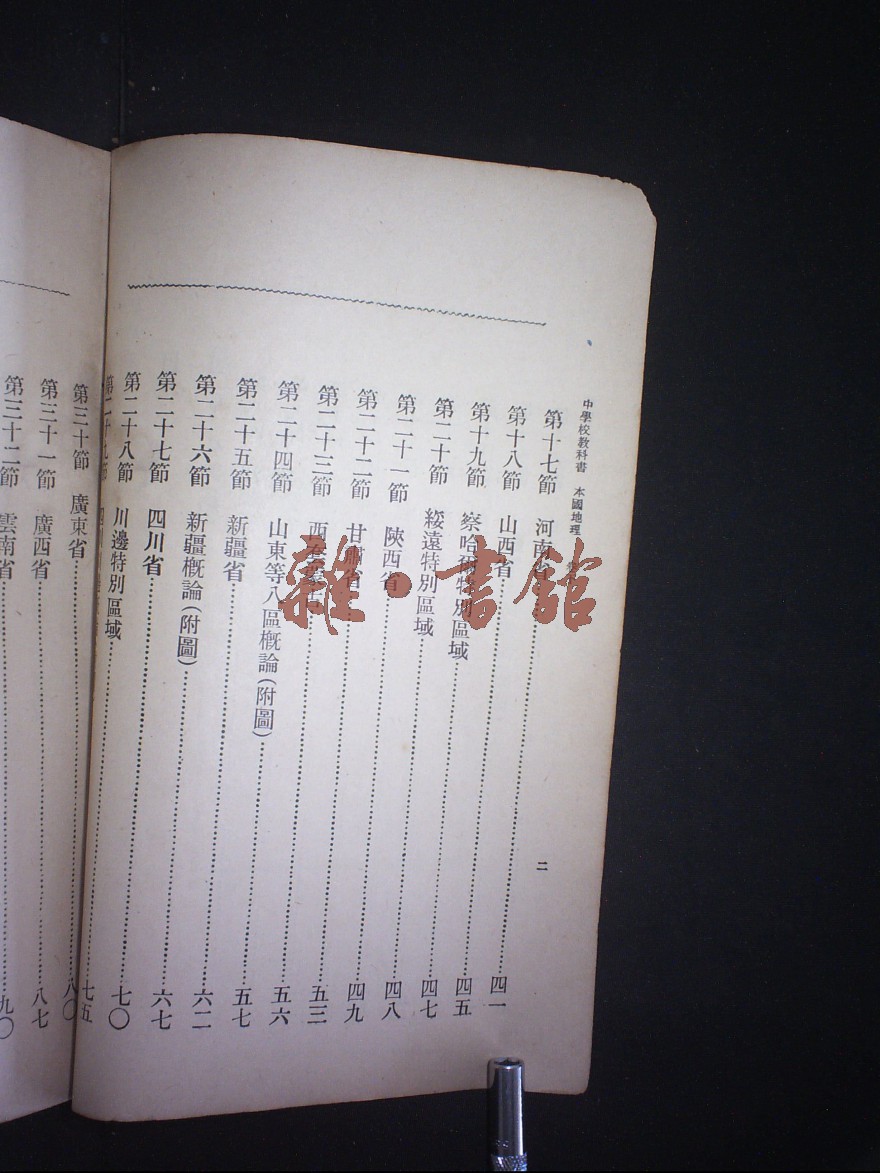 中學校教科書 本國地理
二
第十七節 河南省……四一
第十八節 山西省……四五
第十九節 察哈爾特別區域……四七
第二十節 綏遠特別區域……四八
第二十一節 陝西省……四九
第二十二節 甘肅省……五三
第二十三節 西套蒙古……五六
第二十四節 山東等八區概論(附圖)……五七
第二十五節 新疆省……六二
第二十六節 新疆概論(附圖)……六七
第二十七節 四川省……七〇
第二十八節 川邊特別區域……七五
第二十九節
第三十節 廣東省……八〇
第三十一節 廣西省……八七
第三十二節 雲南省……九〇
雜·書館